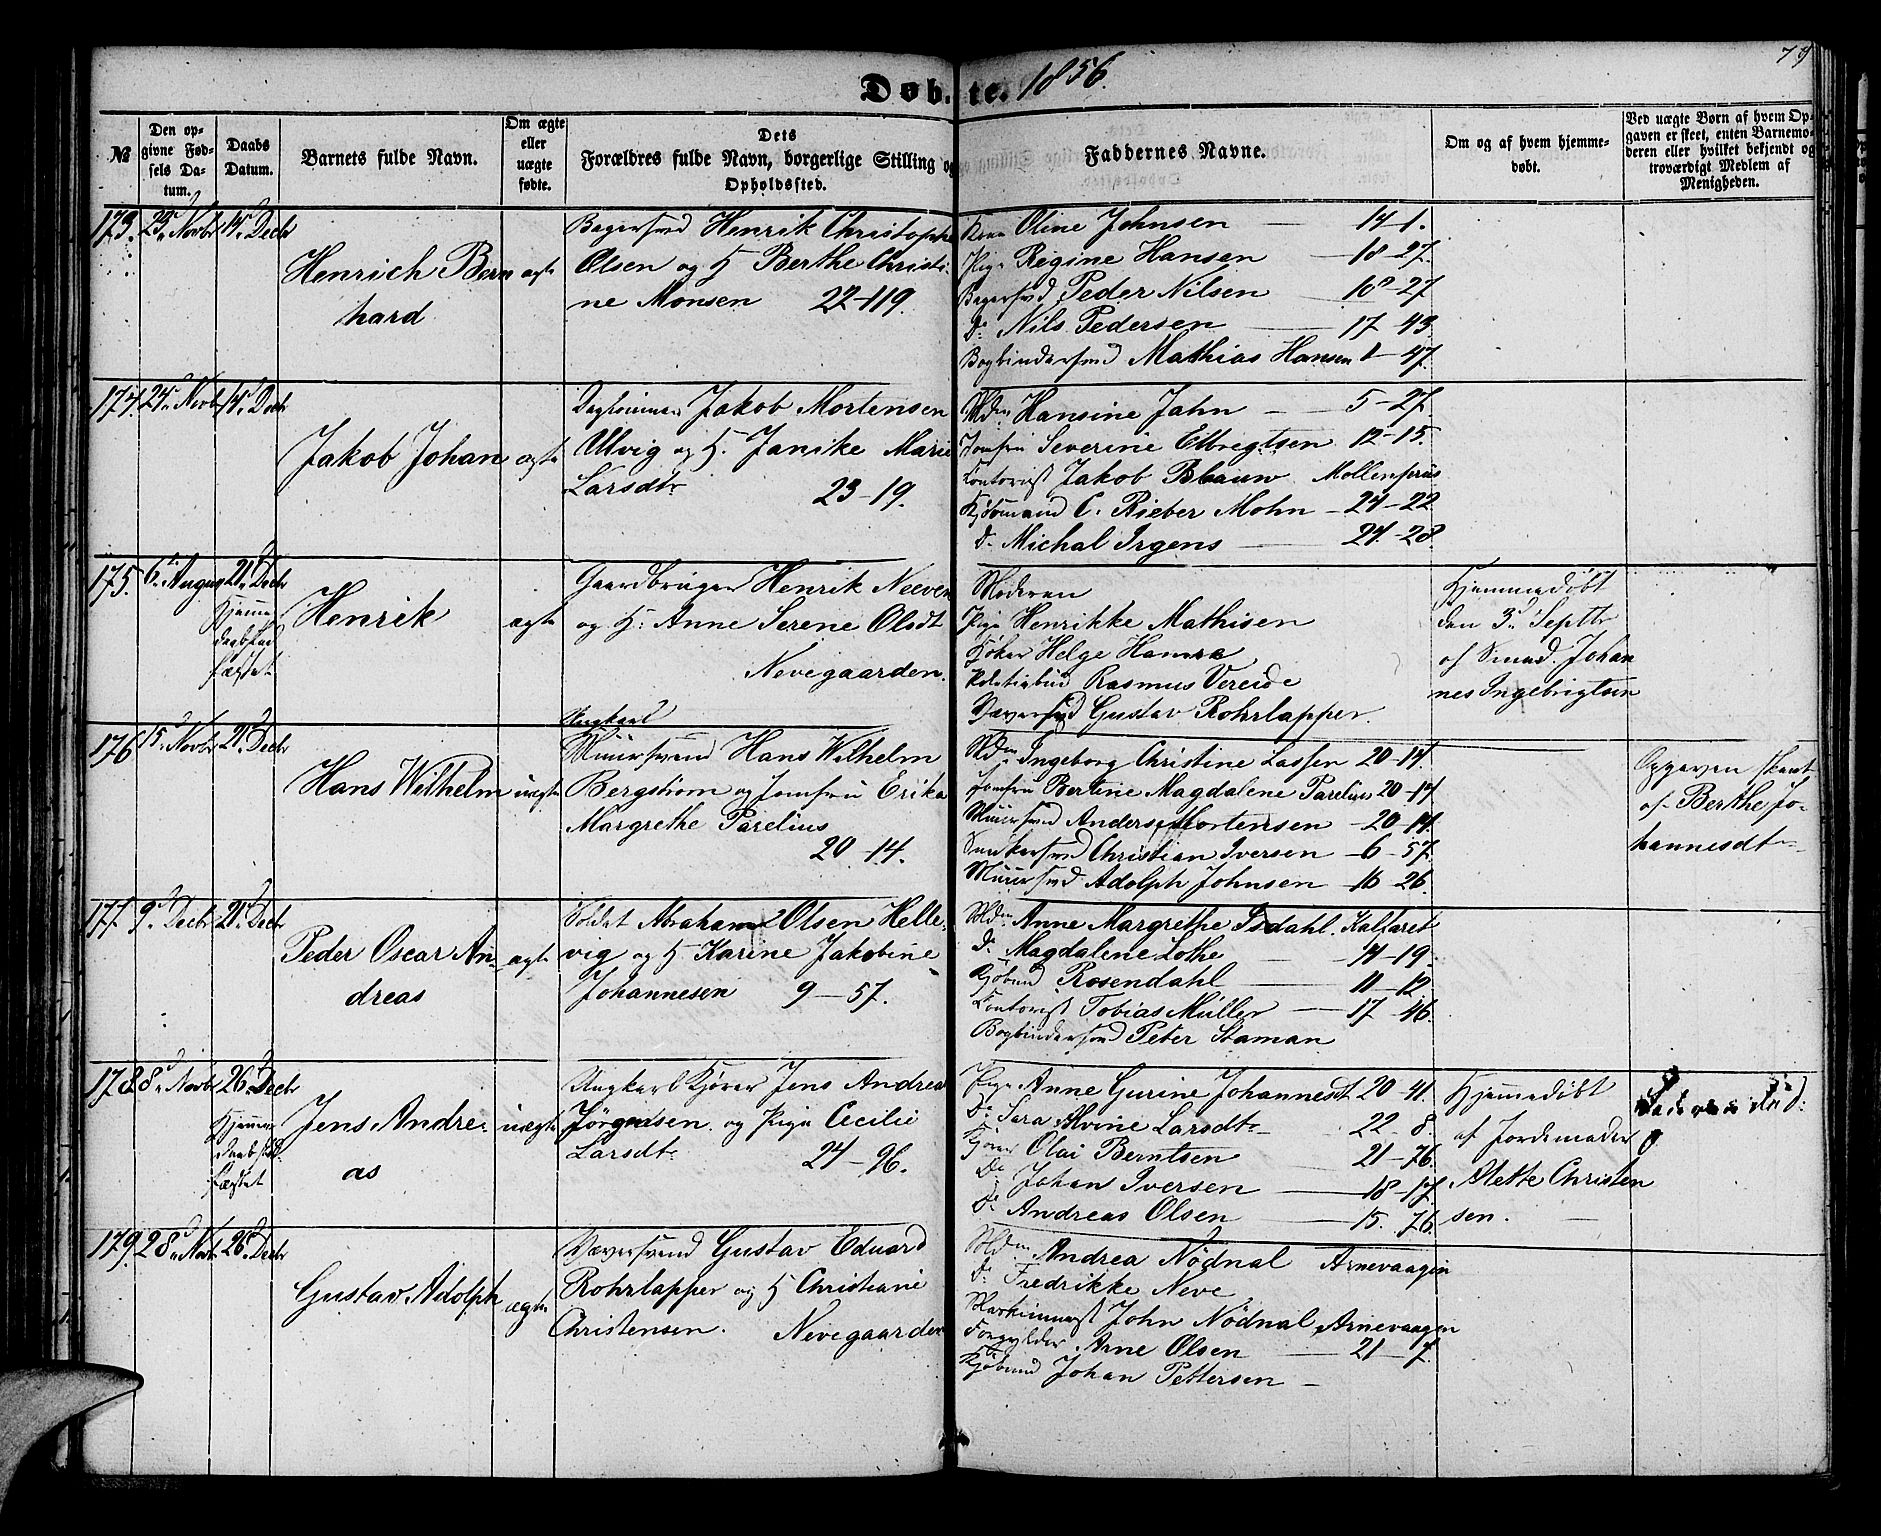 79
Døbte. 1856.
№
Den opgivne Fødsels Datum.
Daabs Datum.
Barnets fulde Navn.
Om ægte eller uægte fødte.
Dets Forældres fulde Navn, borgerlige Stilling og Opholdssted.
Faddernes Navne.
Om og af hvem hjemmedøbt.
Ved uægte Børn af hvem Opgaven er skeet, enten Barnemoderen eller hvilket bekjendt og troværdigt Medlem af Menigheden.
173. 23d Novbr 14d Decbr
Henrich Bern
hard
ægte
Bagersvend Henrik Christopher
Olsen og H Berthe Christi-
ne Monsen 22-119.
Kone Oline Johnsen 14-1.
Pige Regine Hansen 18-27.
Bagersvd Peder Nilsen 16-27
Do Nils Pedersen 17-43.
Bogbindersvend Mathias Hansen 1-47.
174. 24d Novbr 14d Decbr
Jakob Johan
ægte
Jakob Mortensen
Ulvig og H. Janike Marie
Larsdtr 23-19.
Mdm Hansine Jahn 5-27.
Jomfru Severine Elbregtsen 12-15.
Contorist Jakob Blauw Mollenpriis
Kjøbmand C. Rieber Mohn 24-22
Do Michal Irgens 24-28.
175. 6d August 21d Decbr
Hjemme
daabstad
fæstet
Henrik
ægte
Gaardbruger Henrik Neeven
og H: Anne Serene Olsdt
Nevegaarden.
Moderen
Pige Henrikke Mathisen
Helge Hamre
Politibud Rasmus Vereide
Væversvd Gustav Rohrlapper.
Hjemmedøbt
den 3d Septbr
af Smed Johan
nes Ingebrigtsen
176 15d Novbr 21d Decbr
Hans Wilhelm
uægte
Ungkarl
Muursvend Hans Wilhelm
Bergstrom og Jomfru Erika
Margrethe Parelius
20-14.
Mdm Ingeborg Christine Lassen 20-14.
Jomfru Bertine Magdalene Parelius 20-14
Muursvend Anders Mortensen 20-14.
Snedkersvd Christian Iversen 6-57.
Muursvd Adolph Johnsen 16-26.
Opgaven skeet
af Berthe Jo-
hannesdtr
177 9d Decbr 21d Decbr
Peder Oscar An-
dreas
ægte
Soldat Abraham Olsen Helle-
vig og H Karine Jakobine
Johannesen 9-57.
Mdm Anne Margrethe Isdahl. Kalfaret
Do Magdalene Lothe 14-19.
Rosendahl 11-12.
Contorist Tobias Müller 17-46.
Bogbindersvend Peter Staman
178 8d Novbr 26d Decbr
Hjemme
daabstad
fæstet
Jens Andre-
as
uægte
Ungkarl Kjører Jens Andreas
Jörgensen og Pige Cecilie
Larsdtr 24-96.
Pige Anne Gurine Johannesdt 20-41.
Do Sara Alvine Larsdtr 22-8.
Kjører Olai Berntsen 21-76.
Do Johan Iversen 18-17.
Do Andreas Olsen 15.76.
Hjemmedøbt
af Jordemoder
Alette Christen
sen.
179. 28d Novbr. 26d Decbr
Gustav Adolph
ægte
Væversvend Gustav Eduard
Rohrlapper og H Christiane
Christensen. Nevegaarden
Mdm Andrea Nödnal Arnevaagen
Do Fredrikke Neve
Maskinmest John Nödnal Arnevaagen
Forgylder Arne Olsen 21-7.
Johan Pettersen